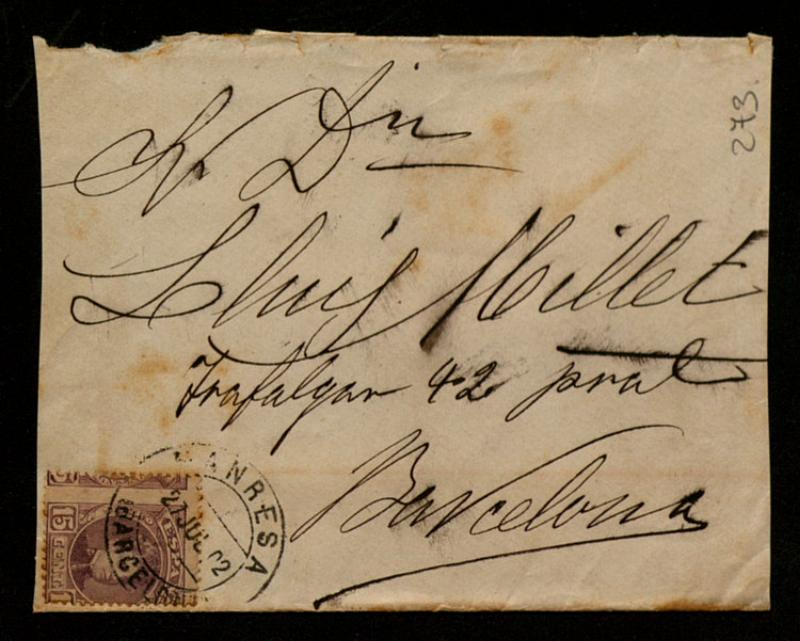 Sr Dn
Lluis Millet
Trafalgar 42 pral
Barcelona
273.
MANRESA
BARCELONA
15